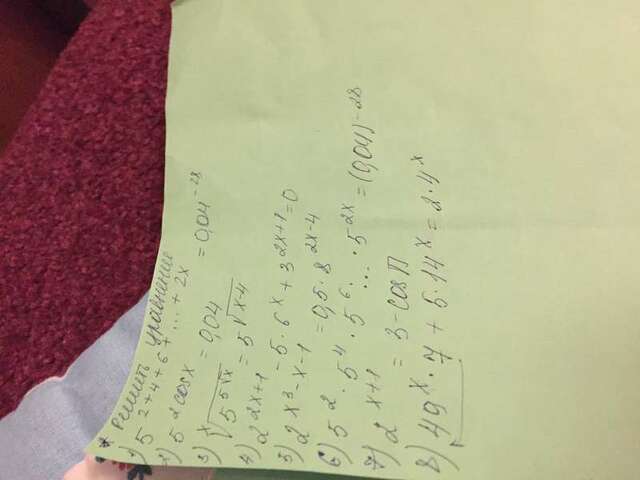 * Решить уравнение
1) 5^{2+4+6+...+2x} = 0,04^{-28}
2) 5^{2cosx} = 0,04
3) \sqrt[x]{5^{5\sqrt{x}}} = 5^{\sqrt{x-4}}
4) 2^{2x+1} - 5·6^x + 3^{2x+1} = 0
5) 2^{x^3-x-1} = 0,5·8^{2x-4}
6) 5^2·5^4·5^6...·5^{2x} = (0,04)^{-28}
7) 2^{x+1} = 3-cosП
8) 49^x·7 + 5·14^x = 2·4^x